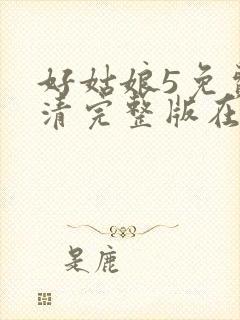 好姑娘5免费
清完整版在
是鹿